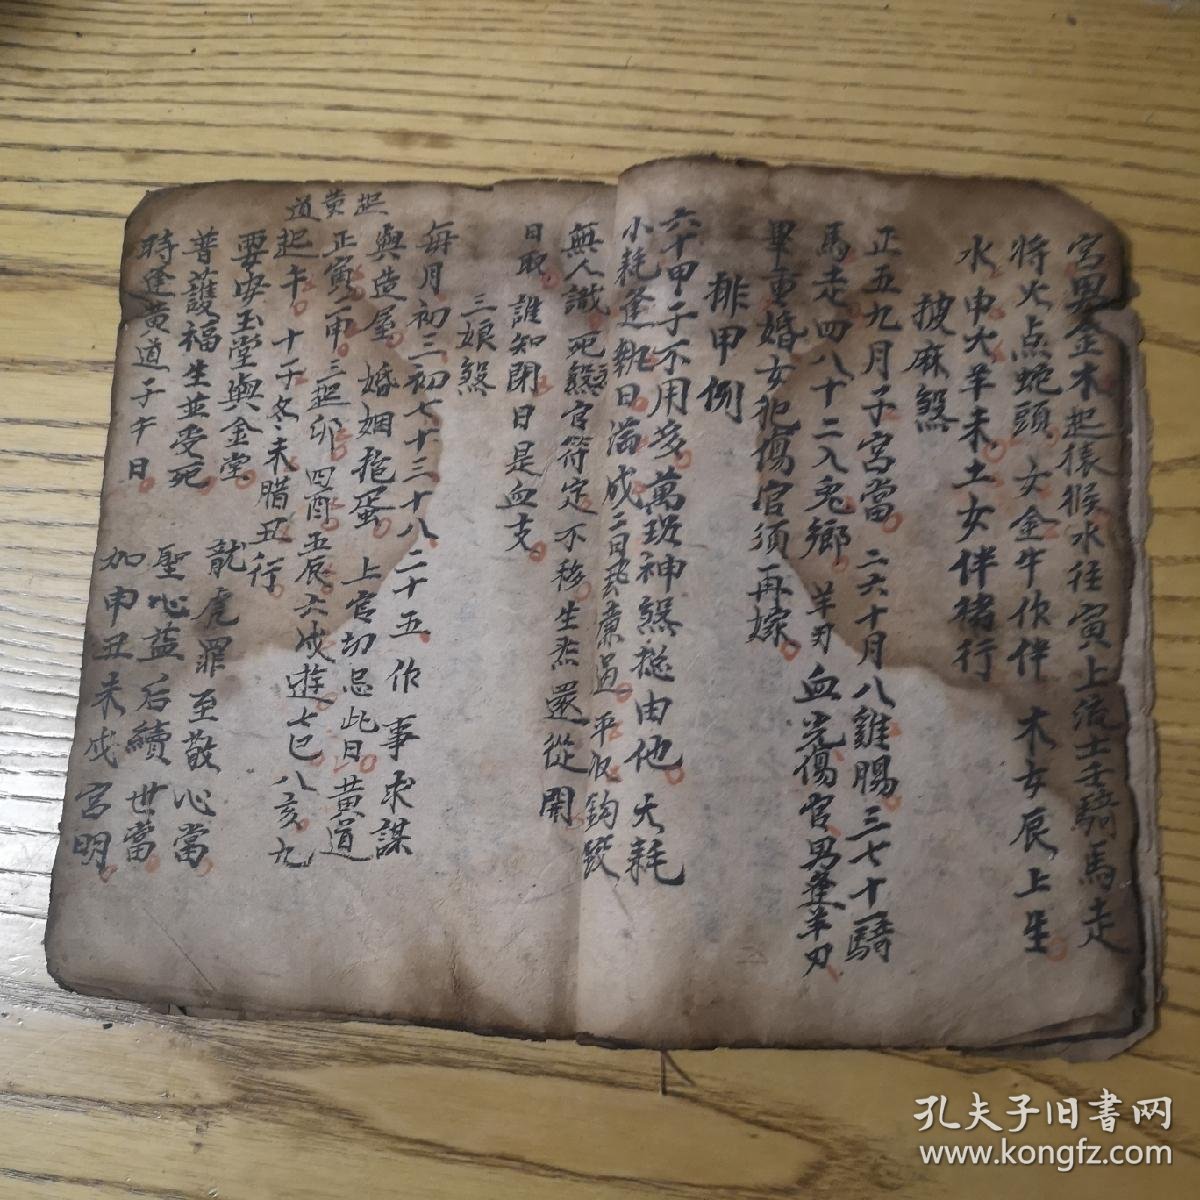 宮男金木起猿猴水往寅上流土壬騎馬走
将火点蛇頭女金牛作伴木女辰上生
水申火羊未土女伴猪行
披麻煞
正五九月子宮當二六十月八雞賜三七十一騎
馬走四八十二入兔鄉羊刃血光傷官男逢羊刃
畢重婚女犯傷官須再嫁
排甲例
六十甲子不用多萬班神煞総由他天耗
小耗逢執日滿成二日過平收鈎
無人識死官符定不移生炁還從開
日取誰知閉日是血支
三娘煞
每月初三初七十三十八二十五作事求謀
與造屋婚姻抱蛋上官切忌此日黃道
正寅二申三卯四酉五辰六戌遊七巳八亥九
起午十子冬未腊丑行
起黃道
要安玉堂與金堂龍虎罪至敬心當
普護福生並受死聖心益后續世當
時逢黃道子午日如申丑未戌宮明
孔夫子旧書网
www.kongfz.com